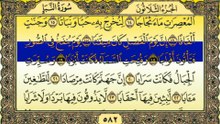 الجزء الثلاثون سورة النبإ
المعصرات ماء ثجاجا ١٤ لنخرج به حبا ونباتا ١٥ وجنات
ألفافا ١٦ إن يوم الفصل كان ميقاتا ١٧ يوم ينفخ في الصور
فتأتون أفواجا ١٨ وفتحت السماء فكانت أبوابا ١٩ وسيرت
الجبال فكانت سرابا ٢٠ إن جهنم كانت مرصادا ٢١ للطاغين
مآبا ٢٢ لابثين فيها أحقابا ٢٣ لا يذوقون فيها بردا ولا شرابا
٥٨٢